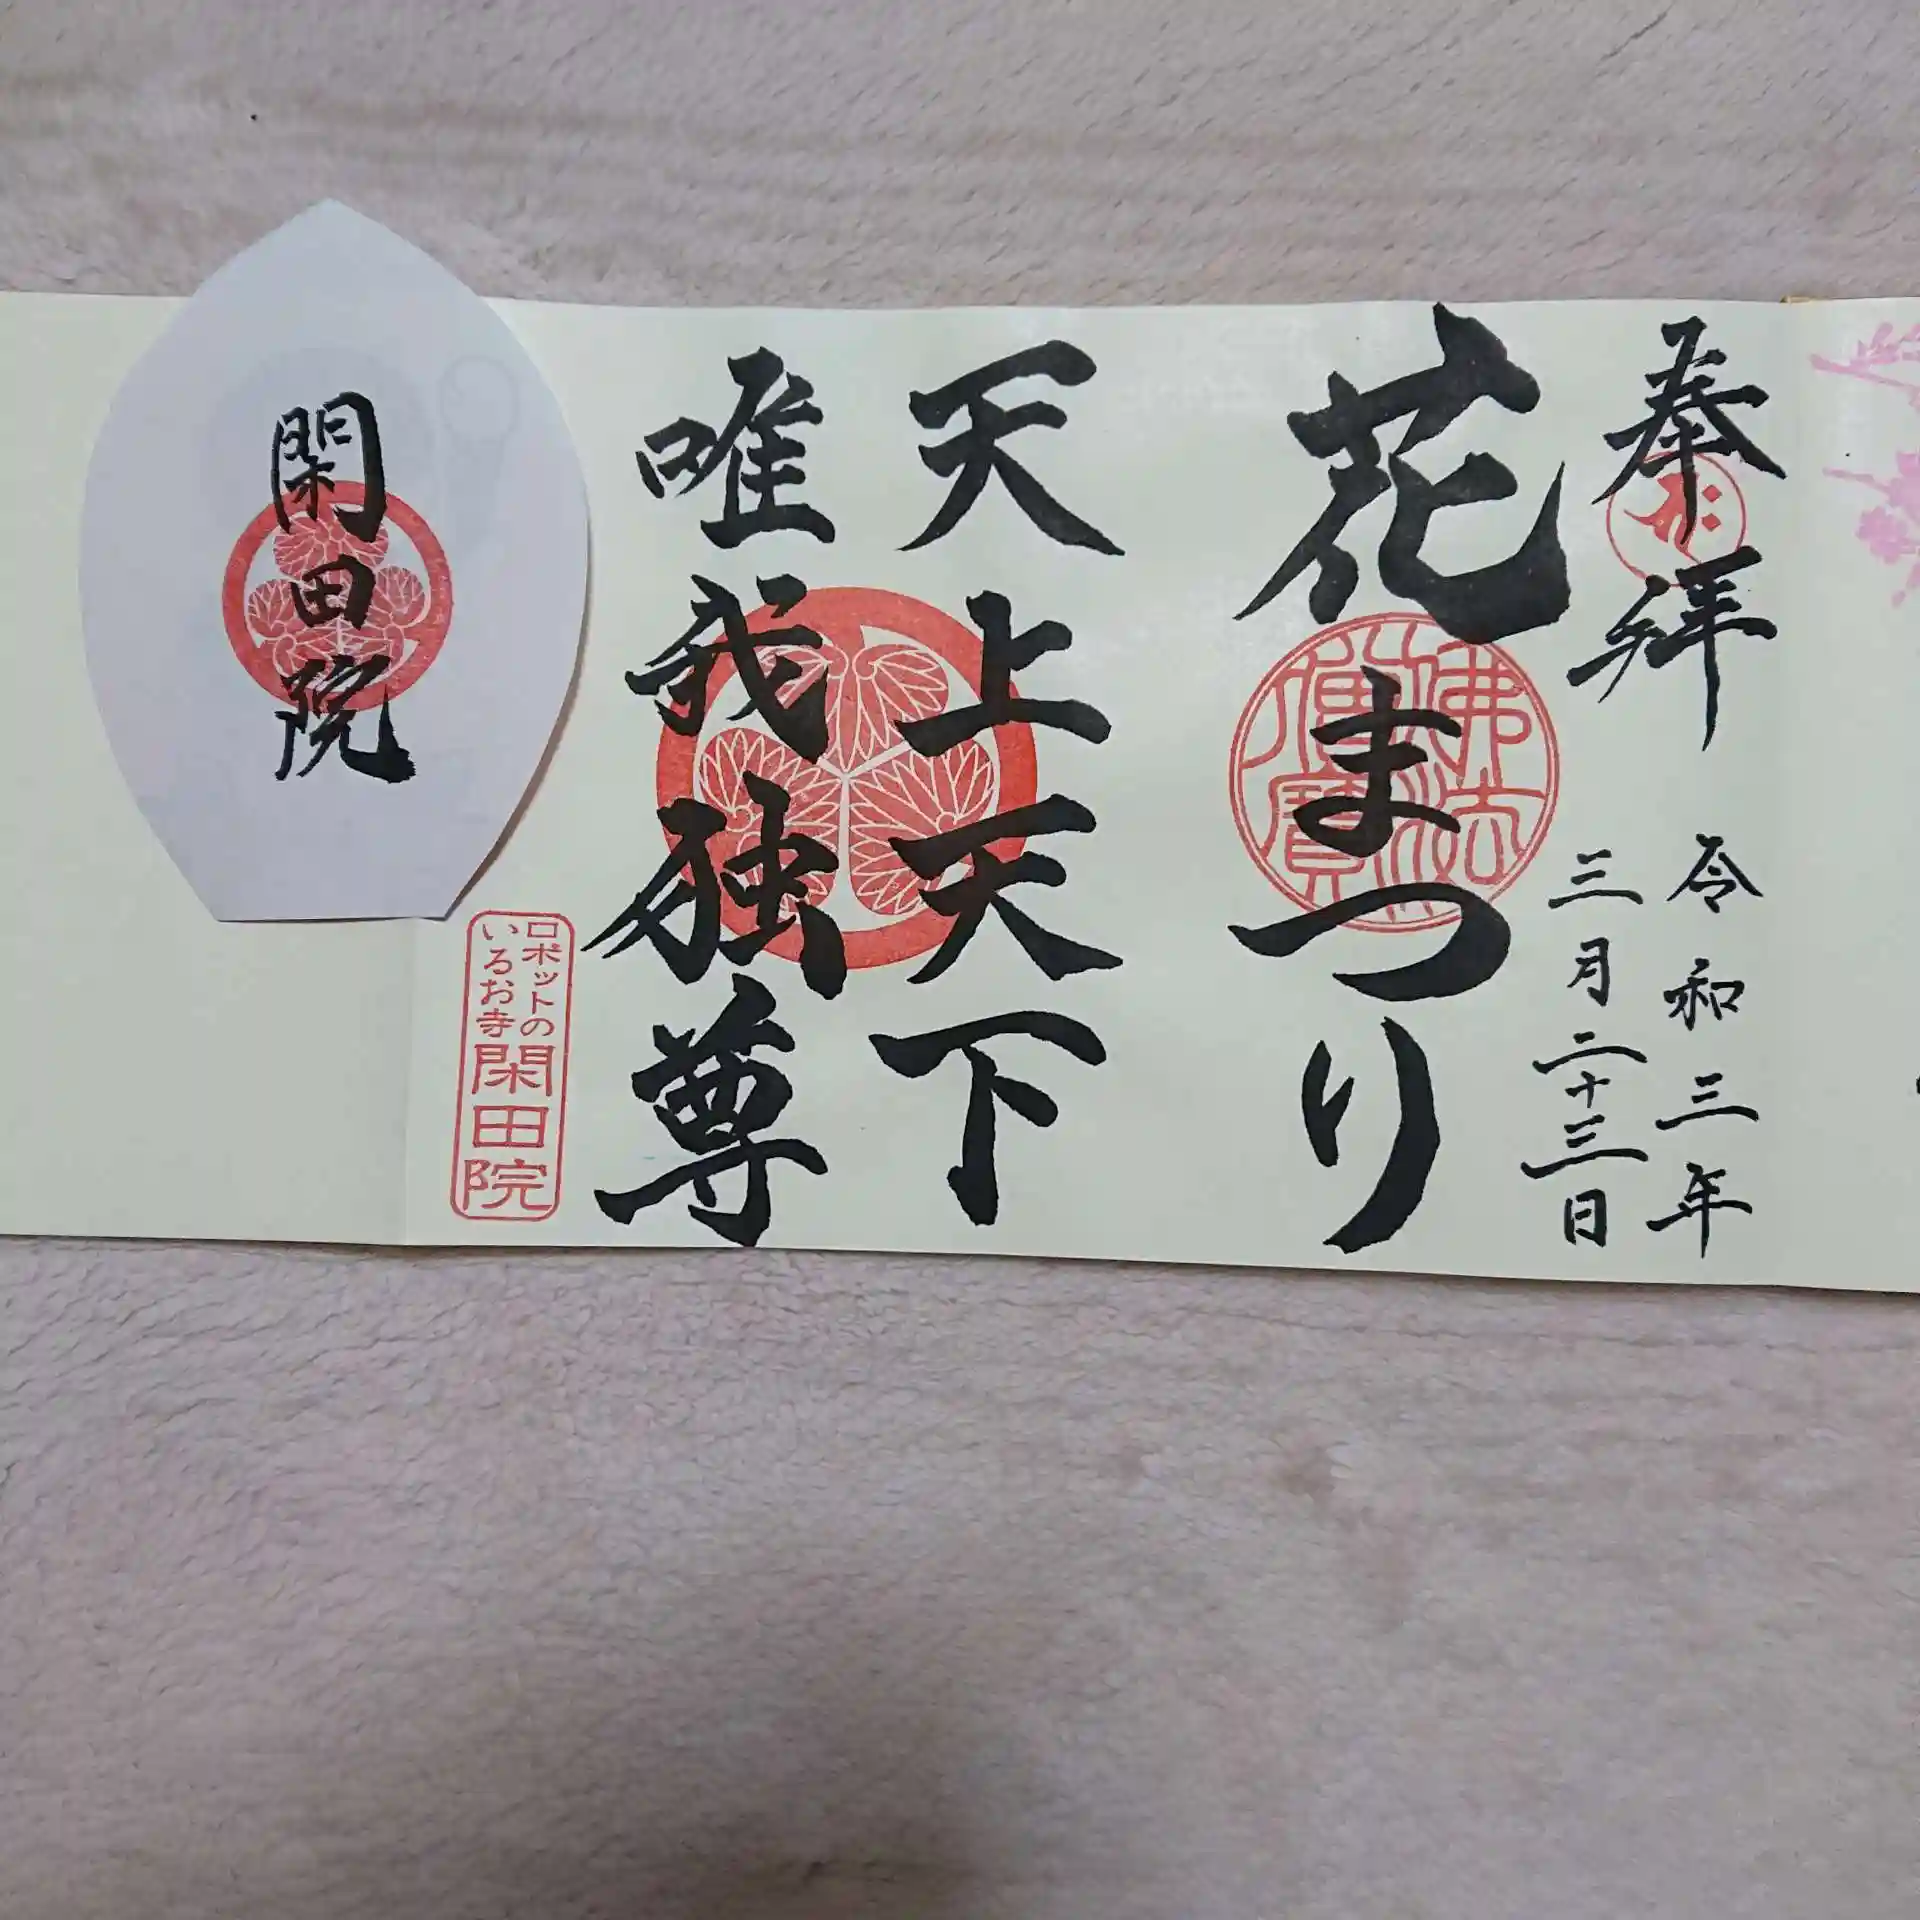 奉拝
令和三年
三月二十三日
花まつり
佛法
僧寳
天上天下
唯我独尊
ロボットの
いるお寺
閑田院
閑田院